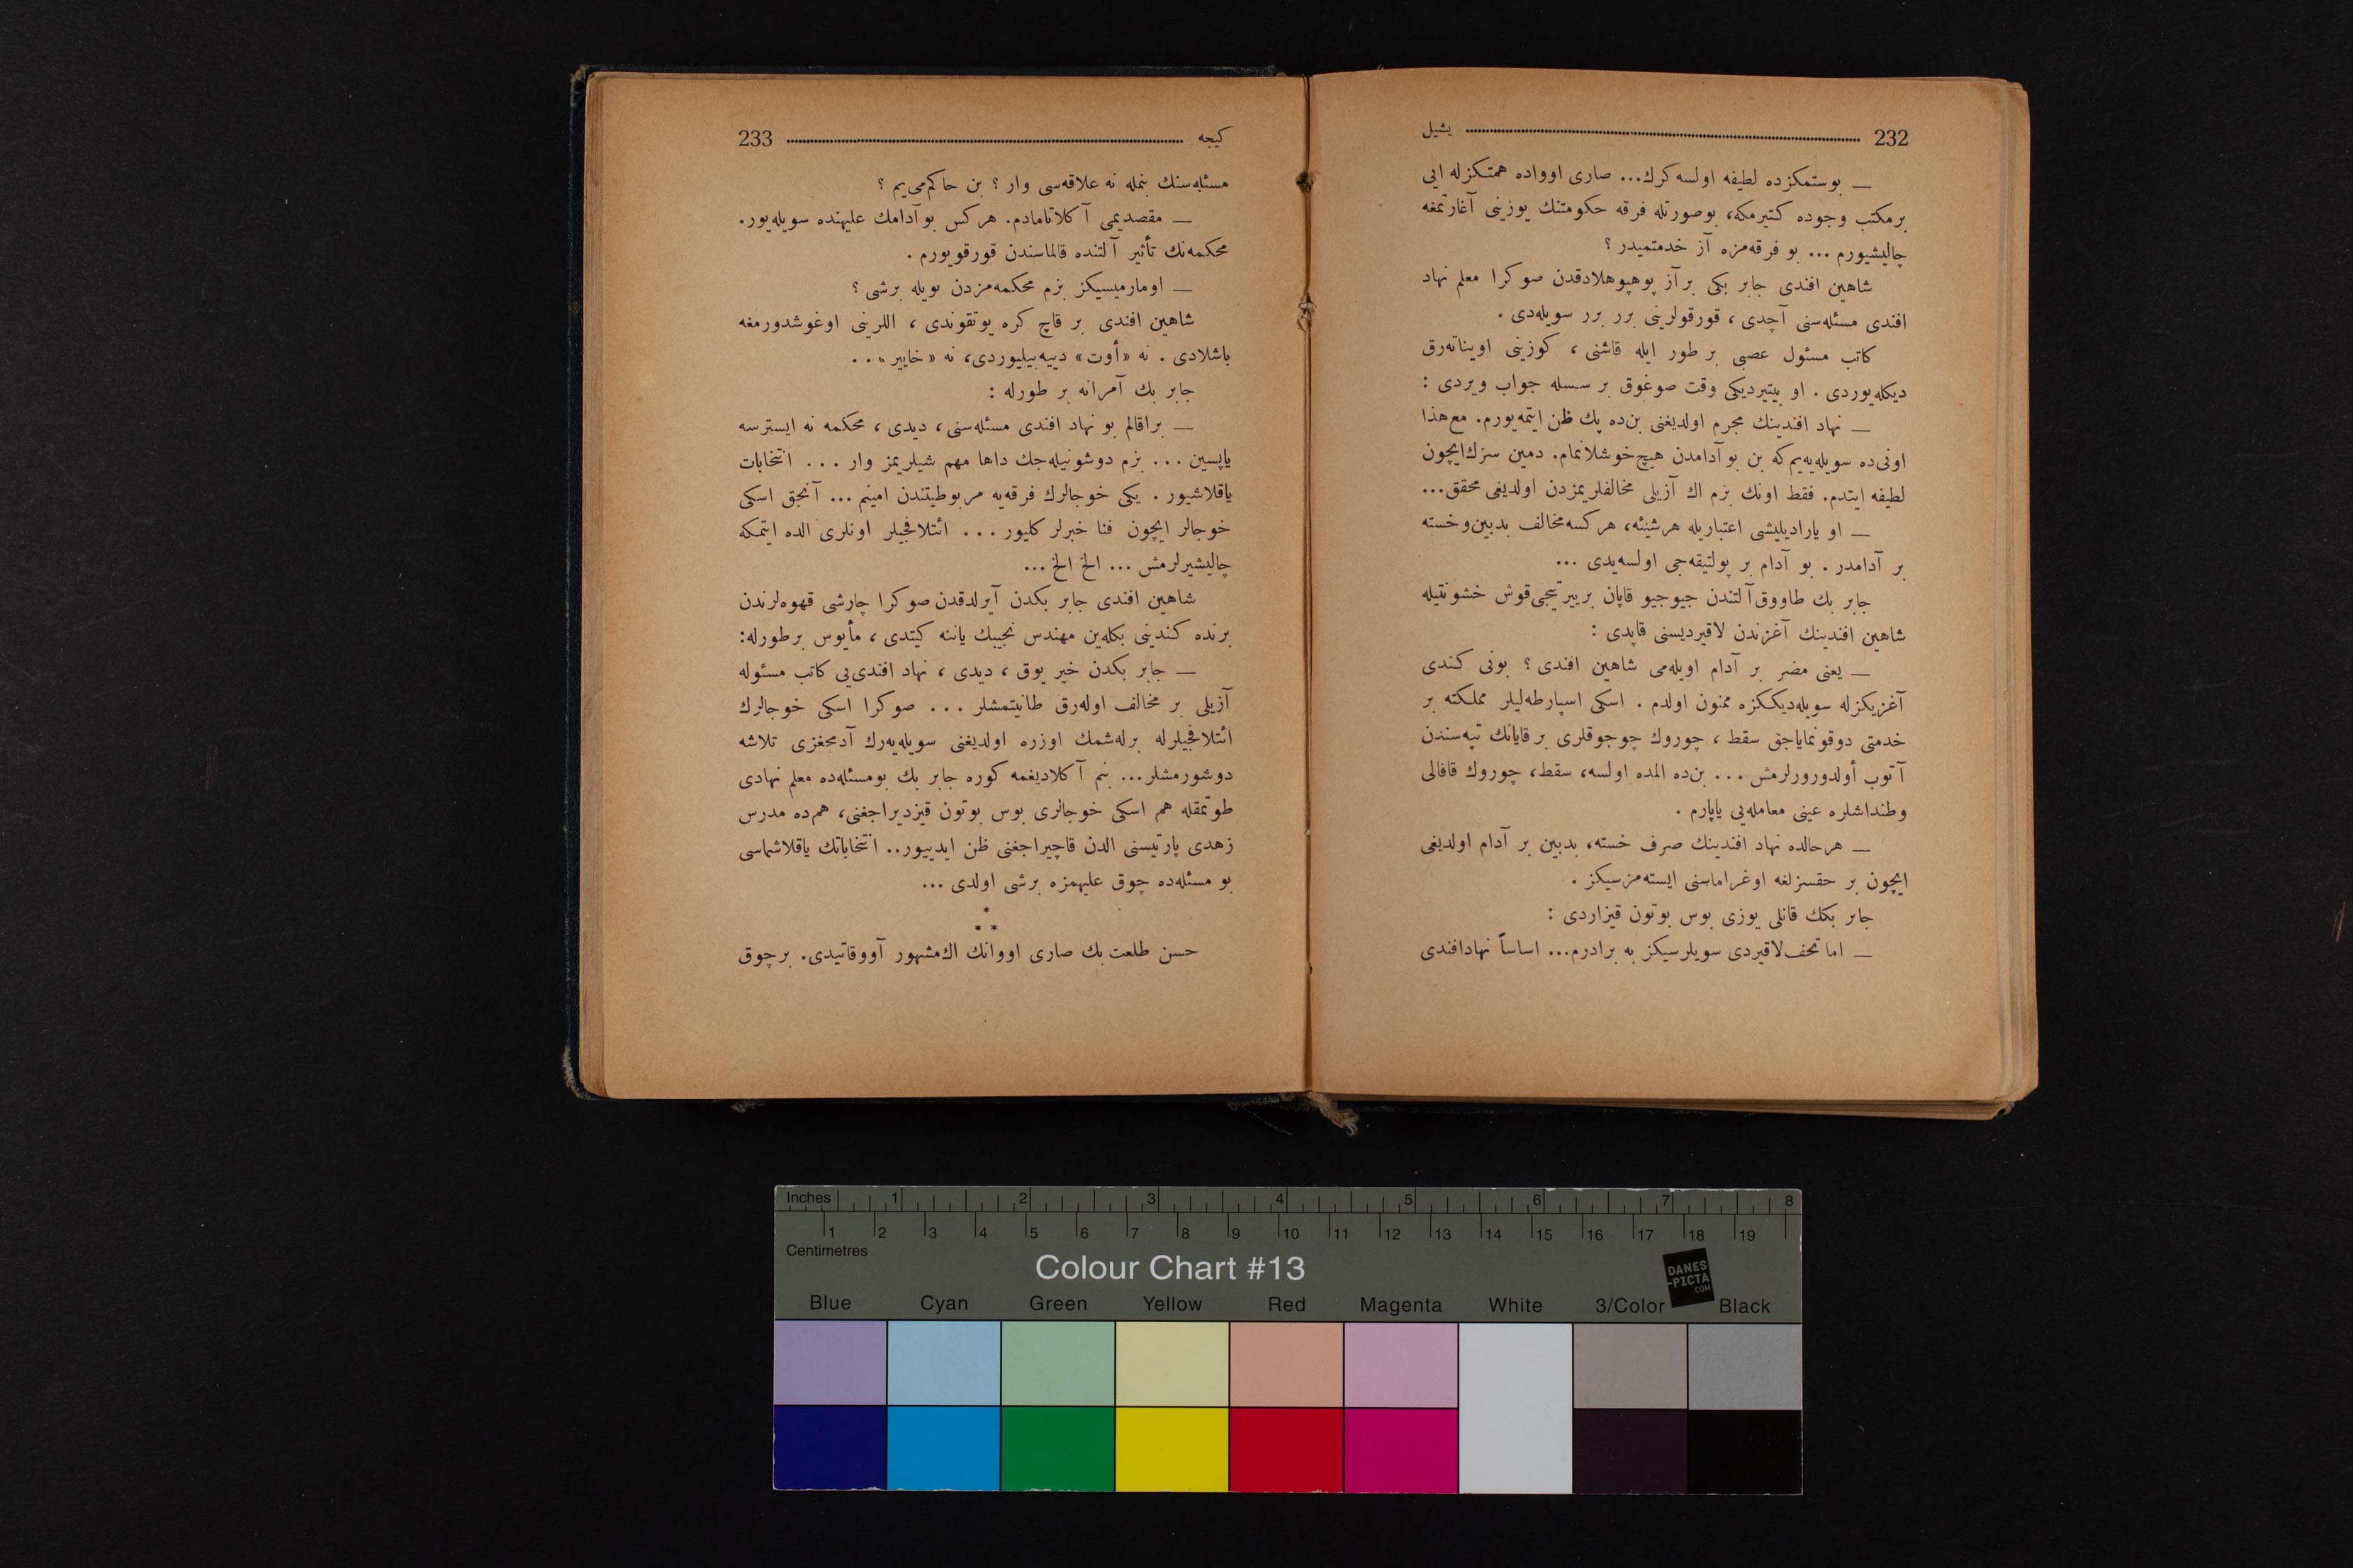 232 یشیل
— بوستمكزده لطیفه اولسه كرك... صاری اوواده همتكزله ایی
برمكتب وجوده كتیرمكه، بوصورتله فرقه حكومتنك یوزینی آغارتمغه
چالیشیورم ... بو فرقه‌مزه آز خدمتمیدر ؟
شاهین افندی جابر بكی بر آز پوهپوهلادقدن صوكرا معلم نهاد
افندی مسئله‌سنی آچدی ، قورقولرینی برر برر سویله‌دی .
كاتب مسئول عصبی بر طور ایله قاشنی ، كوزینی اویناته‌رق
دیكله‌یوردی . او بیتیردیكی وقت صوغوق بر سسله جواب ویردی :
— نهاد افندینك مجرم اولدیغنی بن‌ده پك ظن ایتمه‌یورم. مع‌هذا
اونی‌ده سویله‌یه‌یم كه بن بو آدامدن هیچ خوشلانمام. دمین سزك ایچون
لطیفه ایتدم. فقط اونك بزم اك آزیلی مخالفلریمزدن اولدیغی محقق...
— او یارادیلیشی اعتباریله هرشیئه، هركسه مخالف بدبین وخسته
بر آدامدر . بو آدام بر پولتیقه‌جی اولسه‌یدی ...
جابر بك طاووق آلتندن جیوجیو قاپان بر ییرتیجی قوش خشونتیله
شاهین افندینك آغزندن لاقیردیسنی قاپدی :
— یعنی مضر بر آدام اویله‌می شاهین افندی ؟ بونی كندی
آغزیكزله سویله‌دیككزه ممنون اولدم . اسكی اسپارطه‌لیلر مملكته بر
خدمتی دوقونمایاجق سقط ، چوروك چوجوقلری بر قایانك تپه‌سندن
آتوب أولدورورلرمش ... بن‌ده المده اولسه، سقط، چوروك قافالی
وطنداشلره عینی معامله‌یی یاپارم .
— هرحالده نهاد افندینك صرف خسته، بدبین بر آدام اولدیغی
ایچون بر حقسزلغه اوغراماسنی ایسته‌مزسیكز .
جابر بكك قانلی یوزی بوس بوتون قیزاردی :
— اما تحف لاقیردی سویلرسیكز به برادرم... اساساً نهاد افندی
كیجه 233
مسئله‌سنك بنمله نه علاقه‌سی وار ؟ بن حاكم‌می‌یم ؟
— مقصدیمی آكلاتامادم. هركس بو آدامك علیهنده سویله‌یور.
محكمه‌نك تأثیر آلتنده قالماسندن قورقویورم .
— اومارمیسیكز بزم محكمه‌مزدن بویله برشی ؟
شاهین افندی بر قاچ كره یوتقوندی ، اللرینی اوغوشدورمغه
باشلادی . نه «أوت» دییه‌بیلیوردی، نه «خاییر» . .
جابر بك آمرانه بر طورله :
— براقالم بو نهاد افندی مسئله‌سنی ، دیدی ، محكمه نه ایسترسه
یاپسین ... بزم دوشونیله‌جك داها مهم شیلریمز وار ... انتخابات
یاقلاشیور . یكی خوجالرك فرقه‌یه مربوطیتندن امینم ... آنجق اسكی
خوجالر ایچون فنا خبرلر كلیور ... ائتلافجیلر اونلری الده ایتمكه
چالیشیرلرمش ... الخ الخ ...
شاهین افندی جابر بكدن آیرلدقدن صوكرا چارشی قهوه‌لرندن
برنده كندینی بكله‌ین مهندس نجیبك یاننه كیتدی ، مأیوس بر طورله:
— جابر بكدن خیر یوق ، دیدی ، نهاد افندی‌یی كاتب مسئوله
آزیلی بر مخالف اوله‌رق طانیتمشلر ... صوكرا اسكی خوجالرك
ائتلافجیلرله برله‌شمك اوزره اولدیغنی سویله‌یه‌رك آدمجغزی تلاشه
دوشورمشلر... بنم آكلادیغمه كوره جابر بك بو مسئله‌ده معلم نهادی
طوتمقله هم اسكی خوجالری بوس بوتون قیزدیراجغنی، هم‌ده مدرس
زهدی پارتیسنی الدن قاچیراجغنی ظن ایدییور.. انتخاباتك یاقلاشماسی
بو مسئله‌ده چوق علیهمزه برشی اولدی ...
*
* *
حسن طلعت بك صاری اووانك اك مشهور آووقاتیدی. بر چوق
Inches 1 2 3 4 5 6 7 8
1 2 3 4 5 6 7 8 9 10 11 12 13 14 15 16 17 18 19
Centimetres
Colour Chart #13
DANES
-PICTA
.COM
Blue Cyan Green Yellow Red Magenta White 3/Color Black